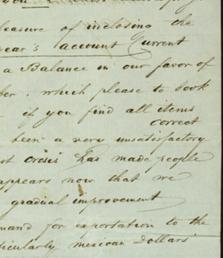 pleasure of inclosing the
year's account Current
a Balance in our favor of
which please to book
if you find all items
correct
been a very unsatisfactory
Crisis has made people
appears now that we
gradual improvement
demand for exportation to the
particularly mexican Dollars